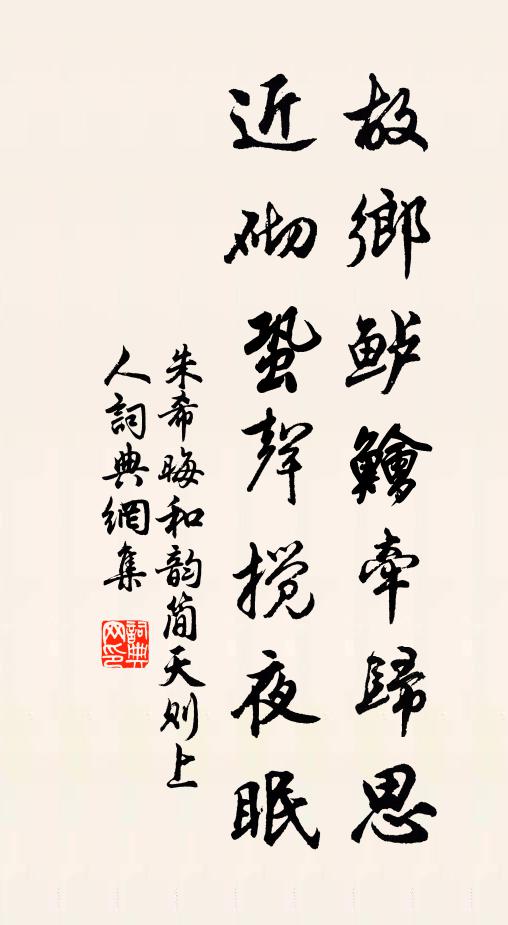 故鄉鲈鱠牽歸思
近砌蛩聲搅夜眠
朱希晦和韵简天则上
人詞典網集
詞典网印